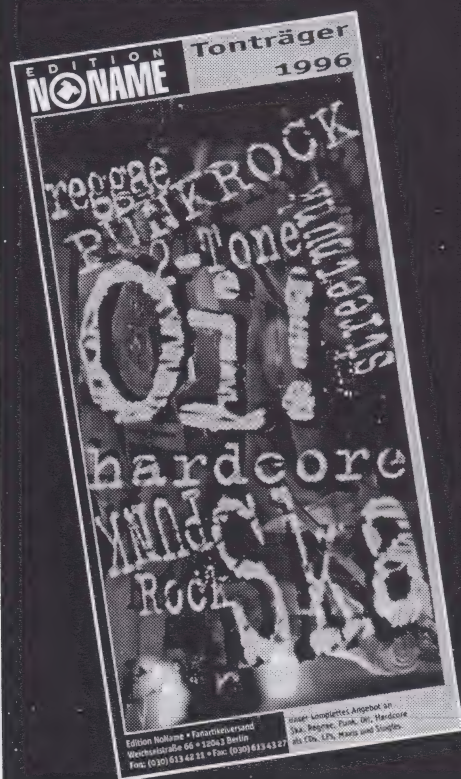 EDITION
NONAME
Tonträger
1996
reggae
PUNKROCK
2-Tone
Oi!
hardcore
PUNK
ROCK
SKA
Edition NoName • Fanartikelversand
Weichselstraße 66 • 12043 Berlin
Fon: (030) 613 42 11 • Fax: (030) 613 43 27
Unser komplettes Angebot an
Ska, Reggae, Punk, Oi!, Hardcore
als CDs, LPs, Maxis und Singles.